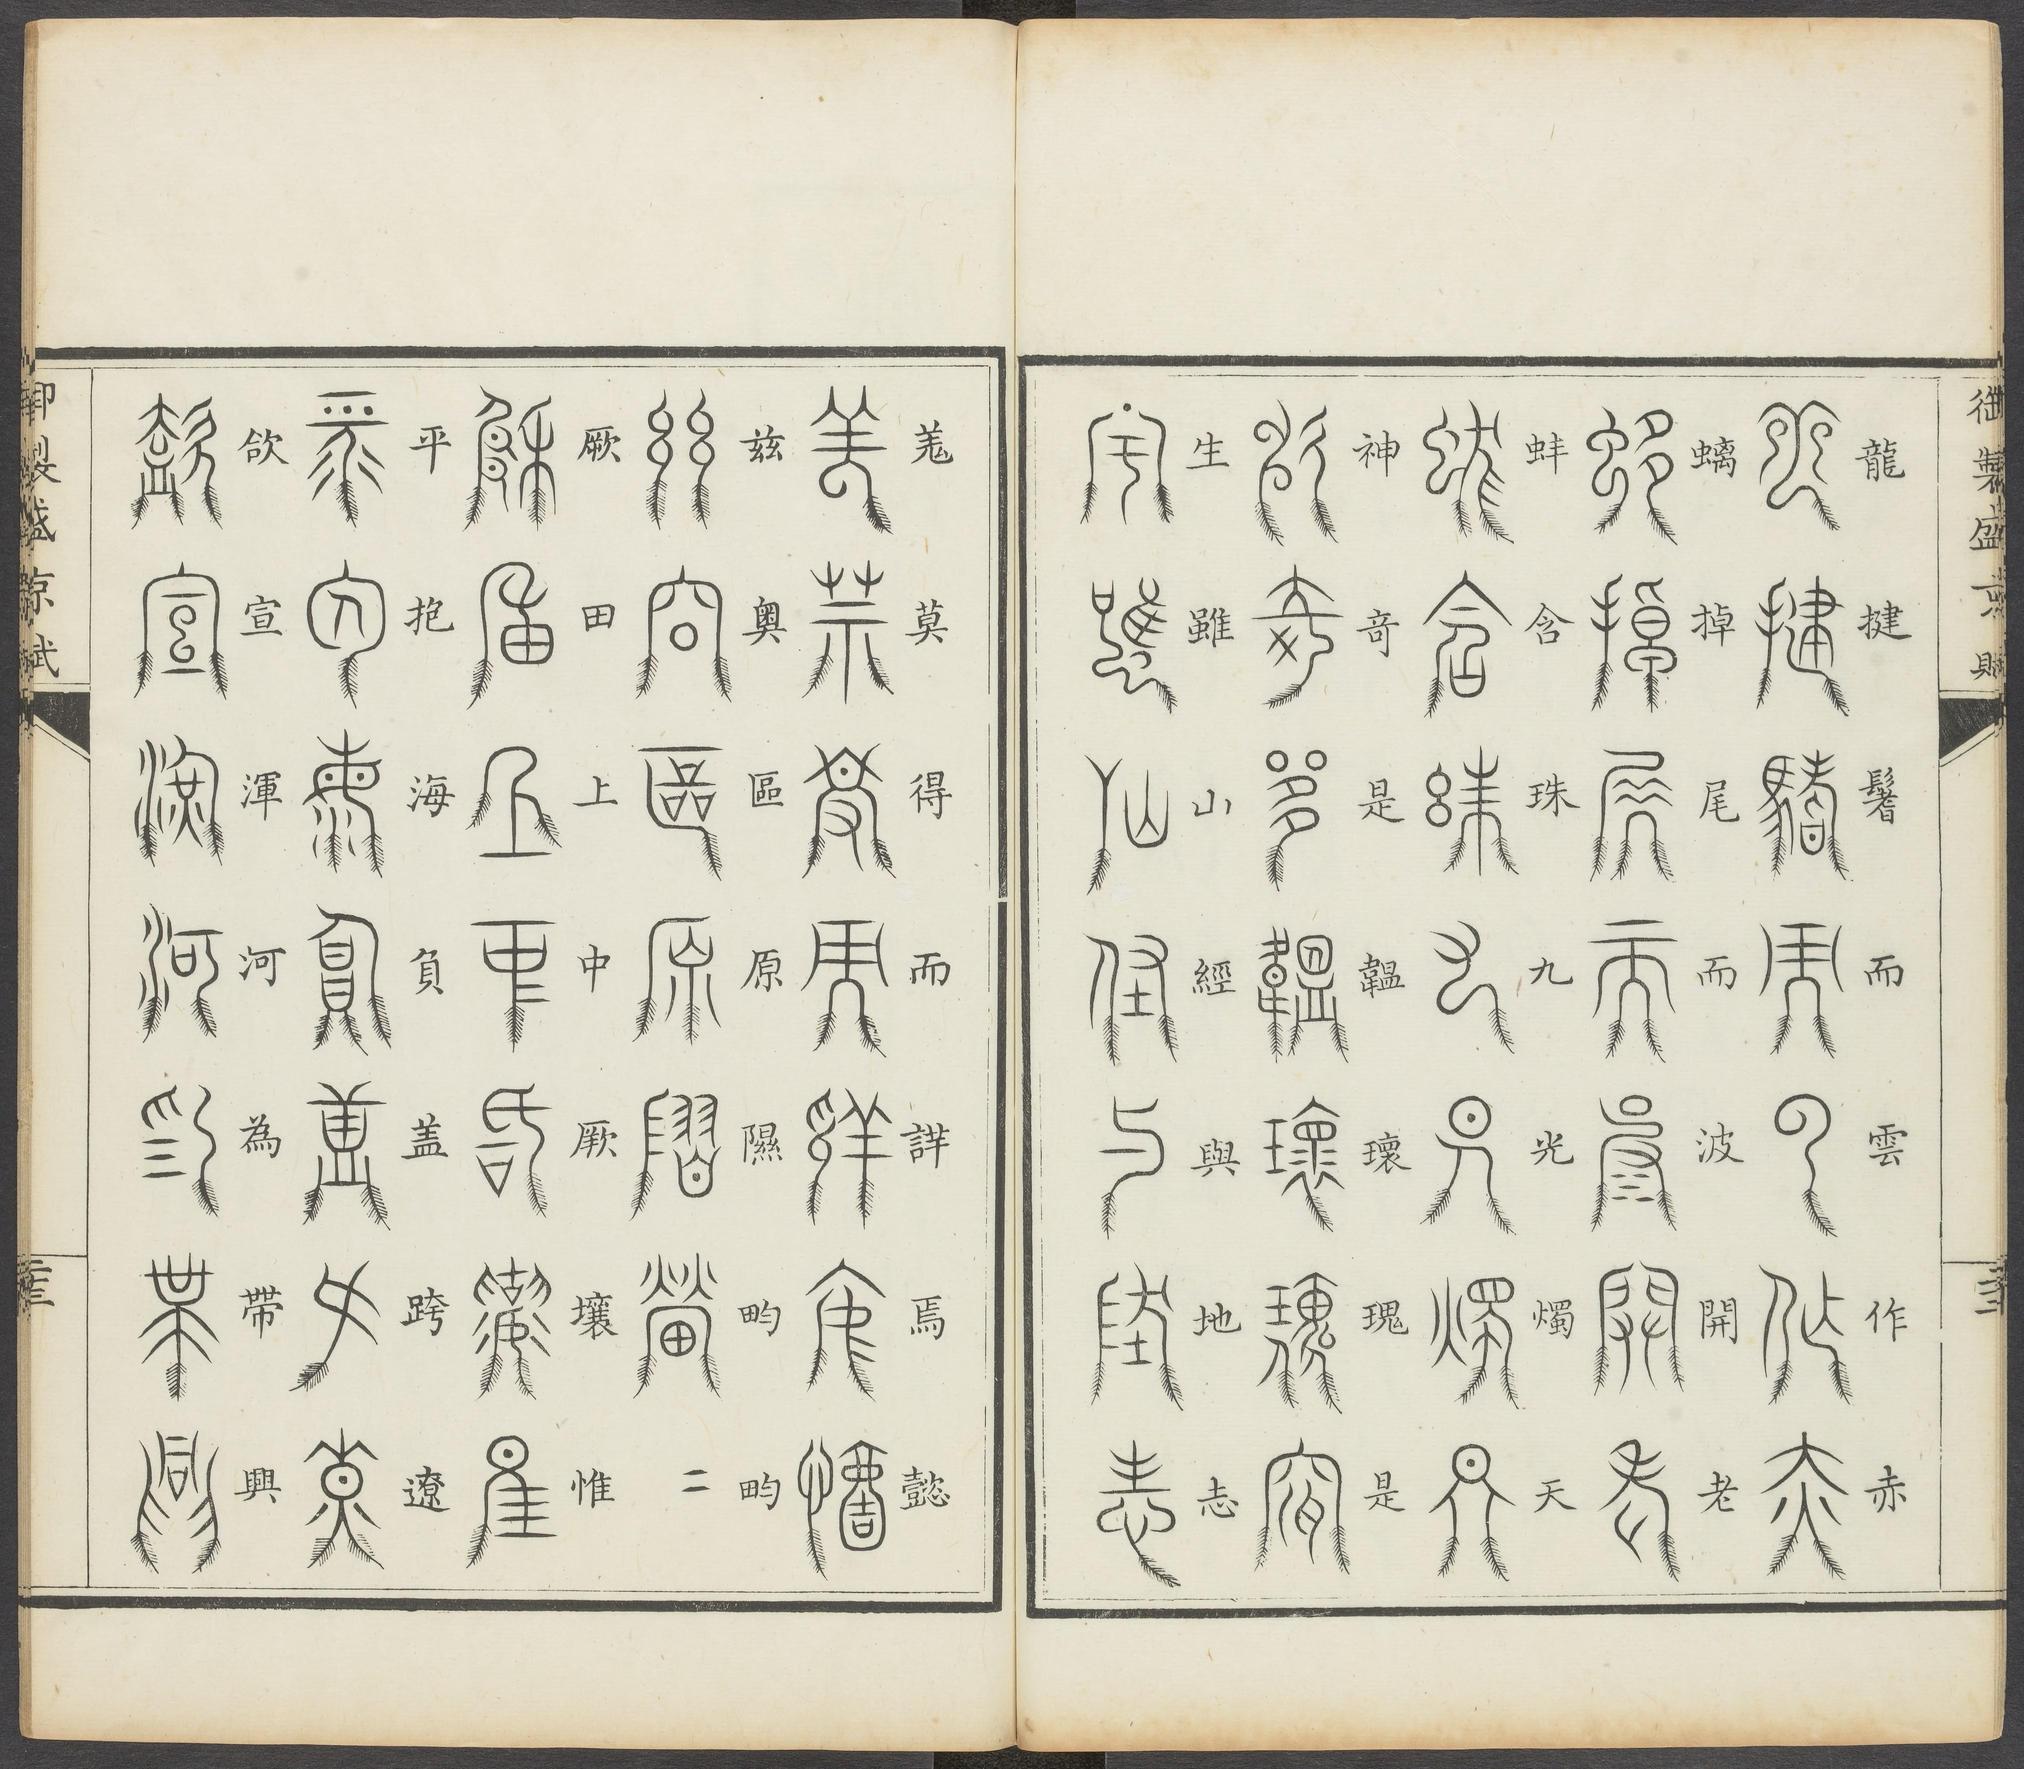 御製盛京賦
龍揵鬐而雲作赤
螭掉尾而波開老
蚌含珠九光燭天
神奇是韞瓌瑰是
生雖山經與地志
羌莫得而詳焉懿
兹奧區原隰畇畇
厥田上中厥壤惟二
平抱海負蓋跨遼
欱宣渾河為帶興
御製盛京賦